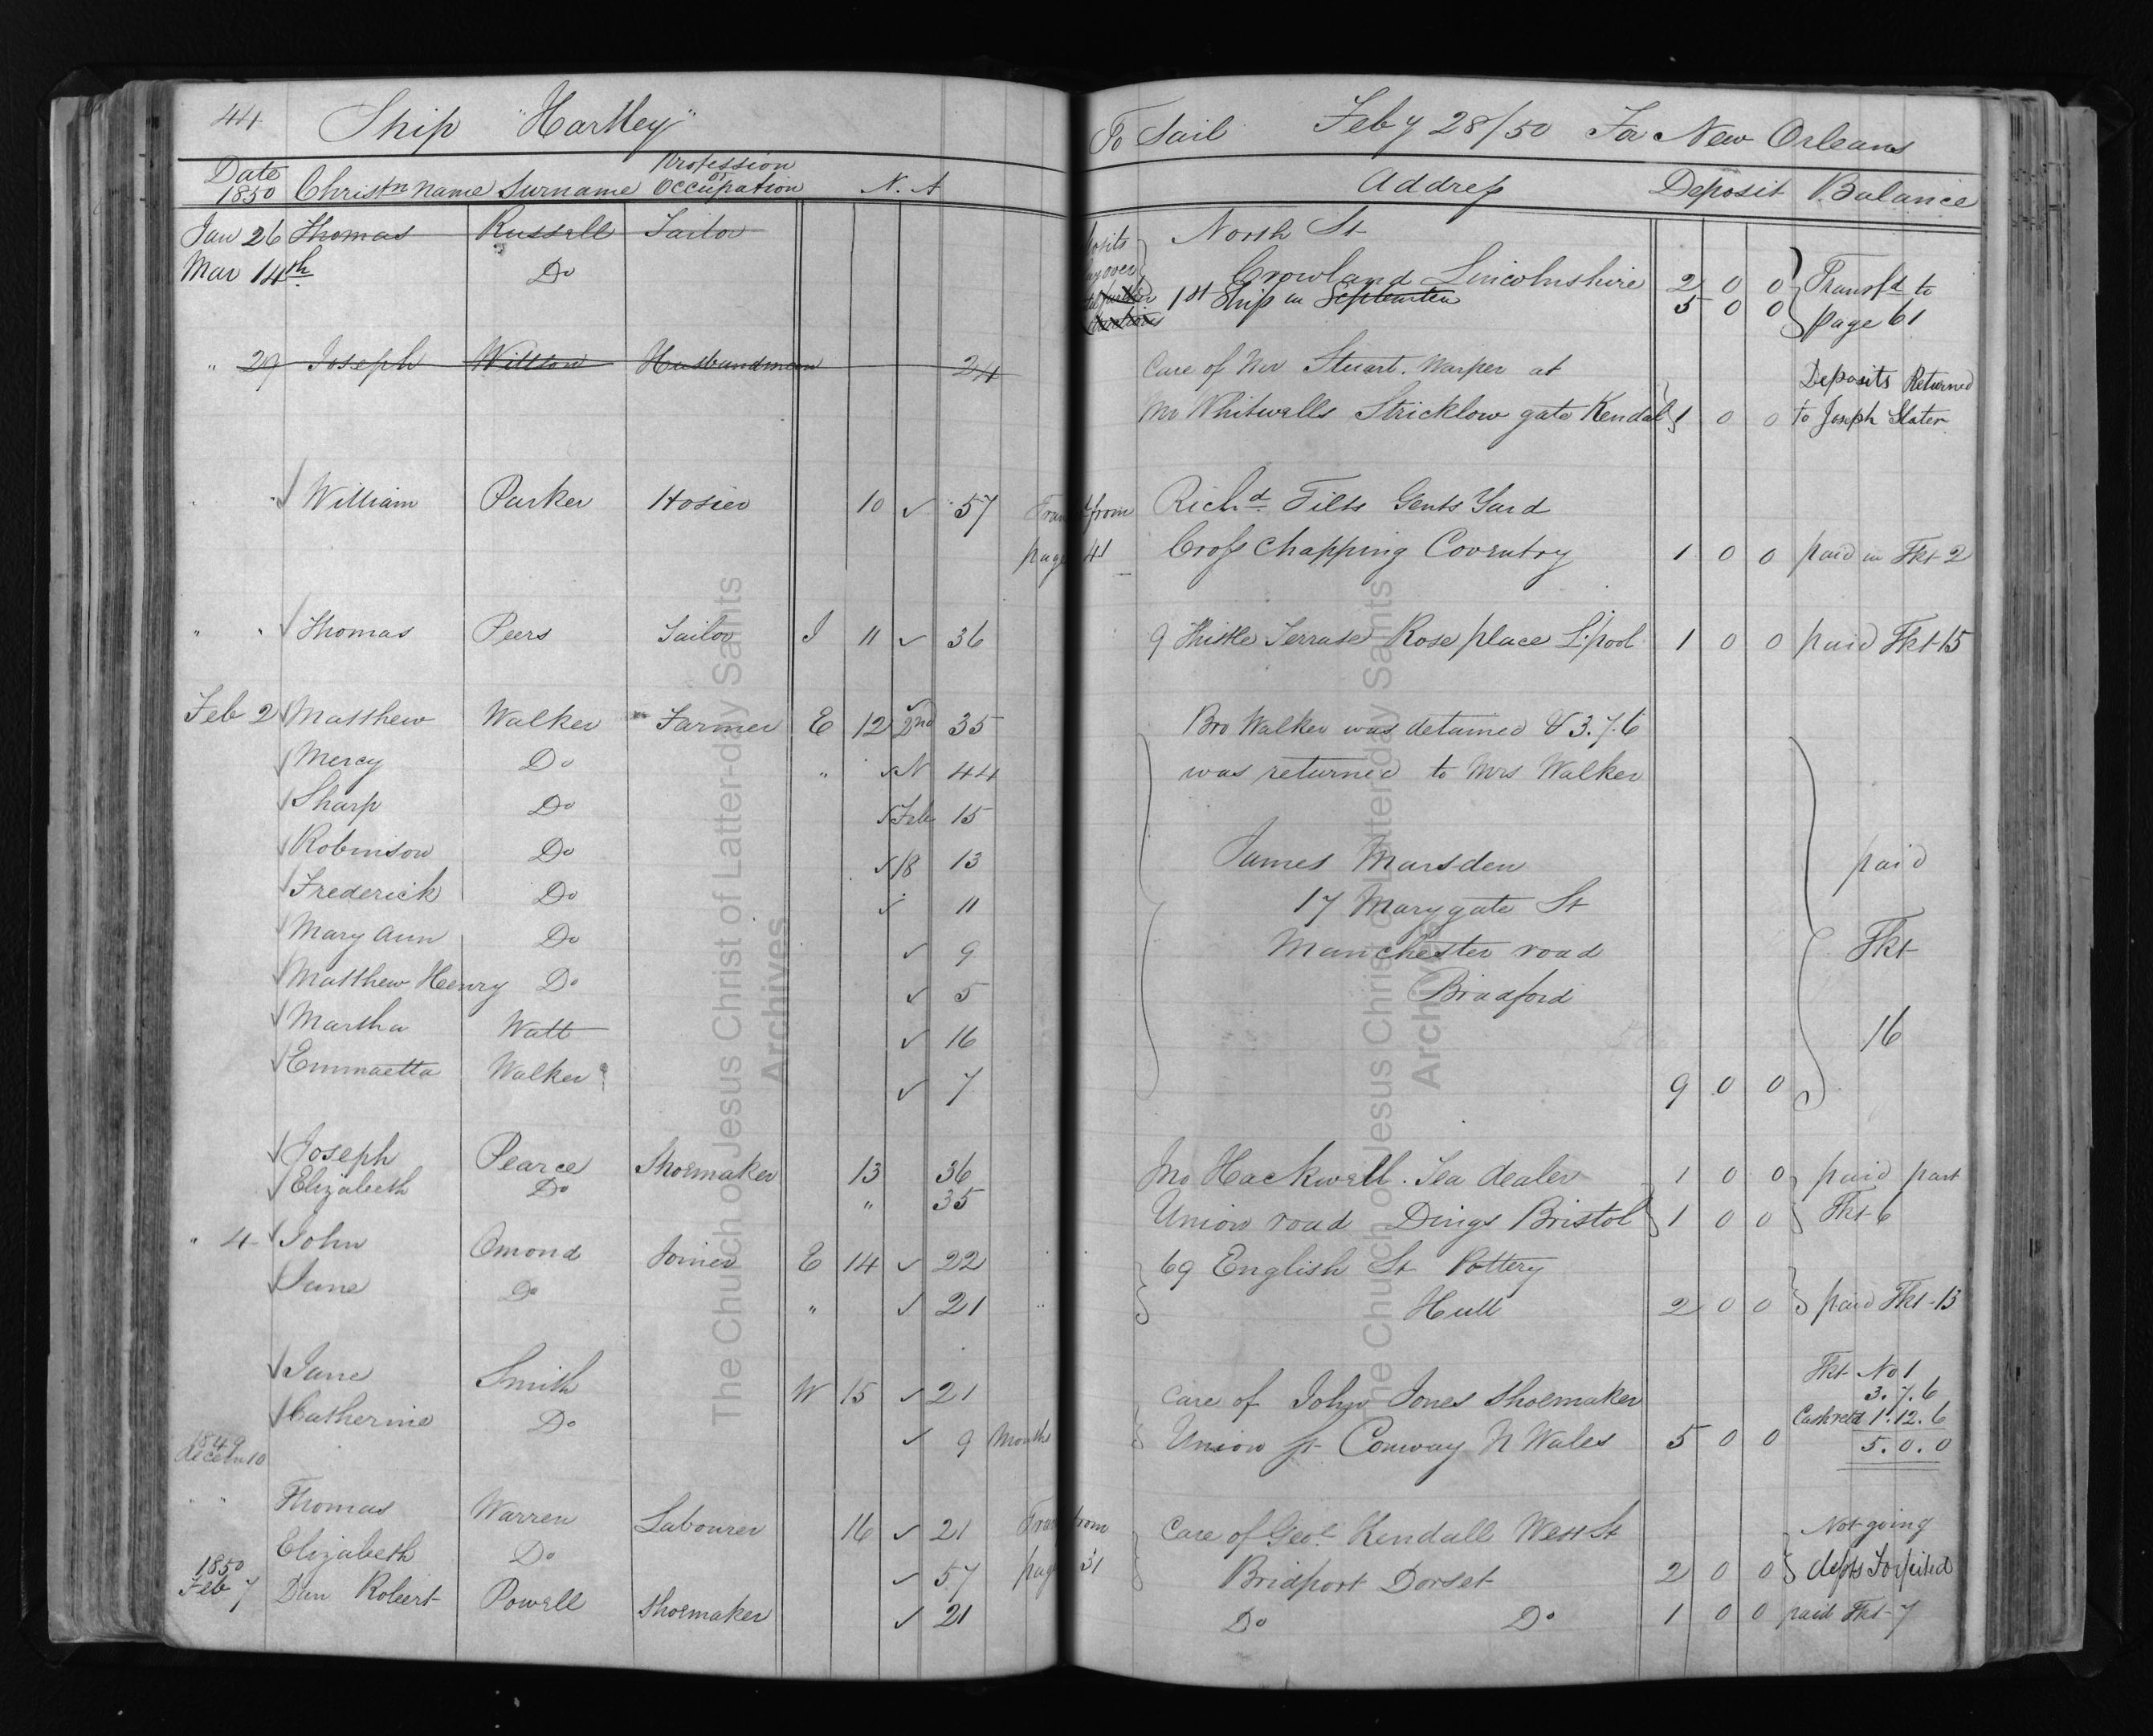 44 Ship "Hartley" To Sail Feby 28/50 For New Orleans
Date 1850 Christn name Surname Profession or Occupation N. A Address Deposit Balance
Jan 26 Thomas Russell Tailor North St
Mar 14th Do Crowland Lincolnshire 2 0 0 Transfd to
1st Ship in September 5 0 0 page 61
" 29 Joseph Willson Husbandman 24 Care of Mr Stuart. Warper at Deposits Returned
Mr Whitwells Stricklow gate Kendal 1 0 0 to Joseph Slater
William Parker Hosier 10 57 Transd from Richd Tilts Gents Yard
page 41 Cross Chapping Coventry 1 0 0 paid in Tkt 2
" " Thomas Peers Tailor I 11 36 9 Thistle Terrase Rose place L.pool 1 0 0 paid Tkt 15
Feb 2 Matthew Walker Farmer E 12 2nd 35 Bro Walker was detained & 3.7.6
Mercy Do " N 44 was returned to Mrs Walker
Sharp Do Feb 15
Robinson Do 18 13 James Marsden paid
Frederick Do 11 17 Marygate St
Mary Ann Do 9 Manchester road Tkt
Matthew Henry Do 5 Bradford
Martha Watt 16 16
Emmaetta Walker 7 9 0 0
Joseph Pearce Shoemaker 13 36 Jno Hackwell. Tea dealer 1 0 0 paid part
Elizabeth Do " 35 Union road Dings Bristol 1 0 0 Tkt 6
" 4 John Omond Joiner E 14 22 69 English St Pottery
Jane Do " 21 " Hull 2 0 0 paid Tkt 13
Jane Smith W 15 21 Care of John Jones Shoemaker Tkt No 1
3.7.6
Catherine Do 9 Months Union St Conway N Wales 5 0 0 Cash retd 1.12.6
1849 decem 10 5.0.0
" " Thomas Warren Labourer 16 21 Tran from Care of Geo Kendall West St Not going
Elizabeth Do 57 page 31 Bridport Dorset 2 0 0 depts Forfeited
1850 Feb 7 Dan Robert Powell Shoemaker 21 Do Do 1 0 0 paid Tkt 7
The Church of Jesus Christ of Latter-day Saints
Archives
The Church of Jesus Christ of Latter-day Saints
Archives